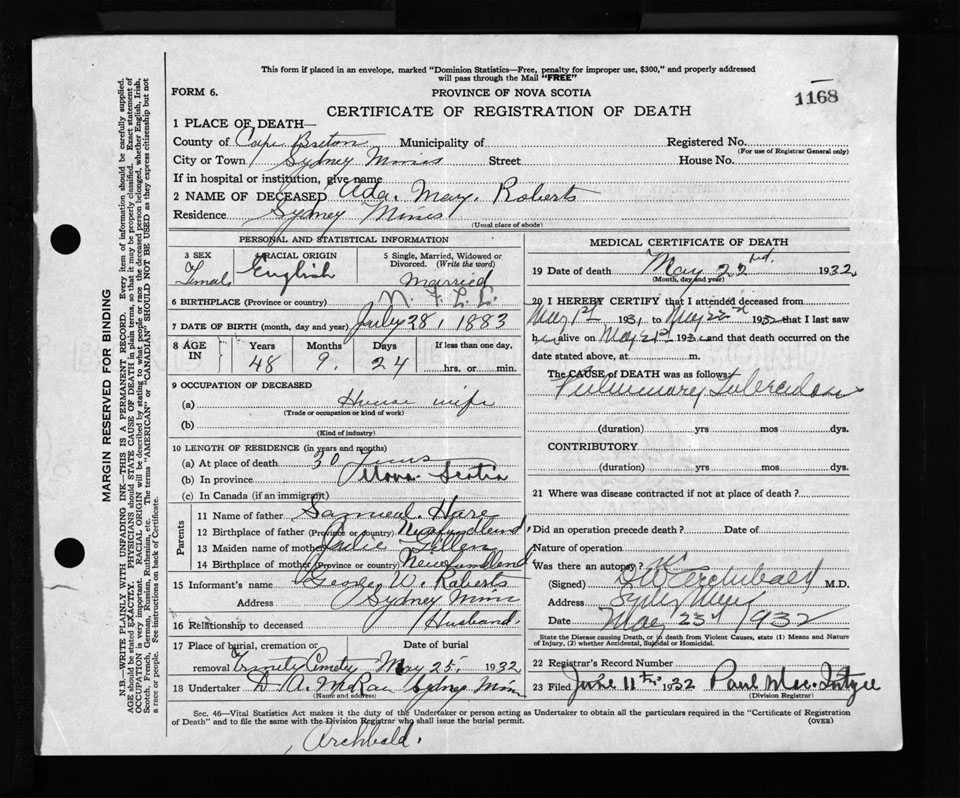 This form if placed in an envelope, marked "Dominion Statistics—Free, penalty for improper use, $300," and properly addressed
will pass through the Mail "FREE"
FORM 6. PROVINCE OF NOVA SCOTIA
1168
CERTIFICATE OF REGISTRATION OF DEATH
1 PLACE OF DEATH—
County of Cape Breton Municipality of Registered No.
(For use of Registrar General only)
City or Town Sydney Mines Street House No.
If in hospital or institution, give name
2 NAME OF DECEASED Ada. May. Roberts
Residence Sydney Mines
(Usual place of abode)
PERSONAL AND STATISTICAL INFORMATION
3 SEX 4 RACIAL ORIGIN 5 Single, Married, Widowed or
Divorced. (Write the word)
Female English Married
6 BIRTHPLACE (Province or country) N. F. L. L.
7 DATE OF BIRTH (month, day and year) July 28, 1883
8 AGE IN Years Months Days If less than one day,
48 9. 24 hrs. or min.
9 OCCUPATION OF DECEASED
(a) House wife
(Trade or occupation or kind of work)
(b)
(Kind of industry)
10 LENGTH OF RESIDENCE (in years and months)
(a) At place of death 30 years
(b) In province Nova Scotia
(c) In Canada (if an immigrant)
Parents
11 Name of father Samuel Hare
12 Birthplace of father (Province or country) Newfundlend
13 Maiden name of mother Julie
14 Birthplace of mother (Province or country) Newfoundlend
15 Informant's name George W. Roberts
Address Sydney Mines
16 Relationship to deceased Husband
17 Place of burial, cremation or Date of burial
removal Trinity Cemetry May 25, 1932
18 Undertaker D. A. McRae Sydney Mines
(Name and address)
MEDICAL CERTIFICATE OF DEATH
19 Date of death May 22nd. 1932
(Month, day and year)
20 I HEREBY CERTIFY that I attended deceased from
May 1st 1931, to May 22nd 1932 that I last saw
her alive on May 21st 1932 and that death occurred on the
date stated above, at m.
The CAUSE OF DEATH was as follows:
Pulmonary Tuberculosis
(duration) yrs mos dys.
CONTRIBUTORY
(duration) yrs mos dys.
21 Where was disease contracted if not at place of death?
Did an operation precede death? Date of
Nature of operation
Was there an autopsy?
(Signed) Archibald M.D.
Address Sydney Mines
Date May 23rd 1932
State the Disease causing Death, or in death from Violent Causes, state (1) Means and Nature
of Injury, (2) whether Accidental, Suicidal or Homicidal.
22 Registrar's Record Number
23 Filed June 11th 1932 Paul Mac. Intyre
(Division Registrar)
Sec. 46—Vital Statistics Act makes it the duty of the Undertaker or person acting as Undertaker to obtain all the particulars required in the "Certificate of Registration
of Death" and to file the same with the Division Registrar who shall issue the burial permit. (OVER)
Archbald.
MARGIN RESERVED FOR BINDING
N.B.—WRITE PLAINLY WITH UNFADING INK—THIS IS A PERMANENT RECORD. Every item of information should be carefully supplied.
AGE should be stated EXACTLY. PHYSICIANS should STATE CAUSE OF DEATH in plain terms, so that it may be properly classified. Exact statement of
OCCUPATION is very important. RACIAL ORIGIN will be described by stating to what people or race the deceased person belonged, whether English, Irish,
Scotch, French, German, Russian, Ruthenian, etc. The terms "AMERICAN" or "CANADIAN" SHOULD NOT BE USED as they express citizenship but not
a race or people. See instructions on back of Certificate.